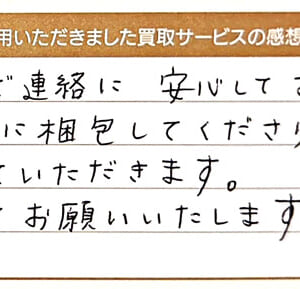 用いただきました買取サービスの感想
ご連絡に 安心して
に梱包してくださ
いただきます。
お願いいたします